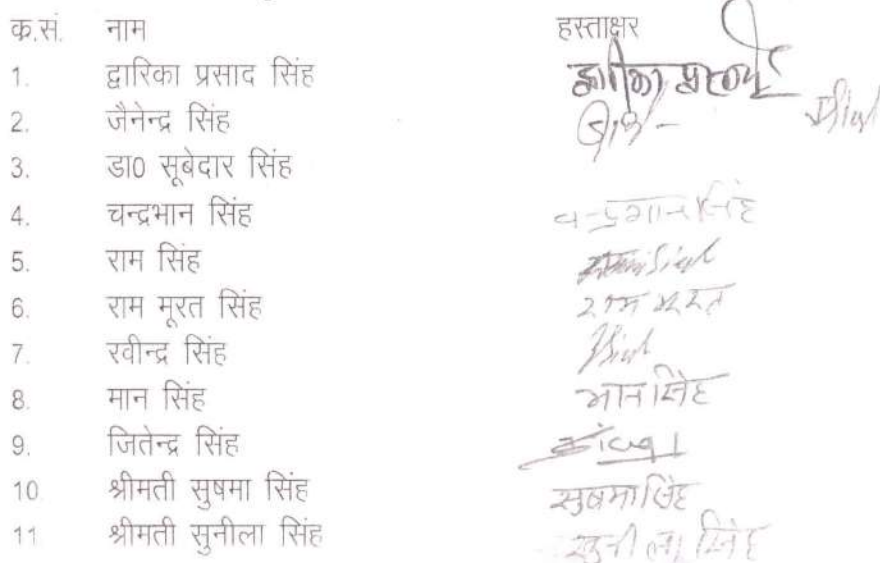 क.सं. नाम हस्ताक्षर
1. द्वारिका प्रसाद सिंह द्वारिका प्रसाद
2. जैनेन्द्र सिंह
3. डा0 सूबेदार सिंह
4. चन्द्रभान सिंह चन्द्रभान सिंह
5. राम सिंह
6. राम मूरत सिंह राम मूरत
7. रवीन्द्र सिंह
8. मान सिंह मान सिंह
9. जितेन्द्र सिंह
10 श्रीमती सुषमा सिंह सुषमा सिंह
11 श्रीमती सुनीला सिंह सुनीला सिंह